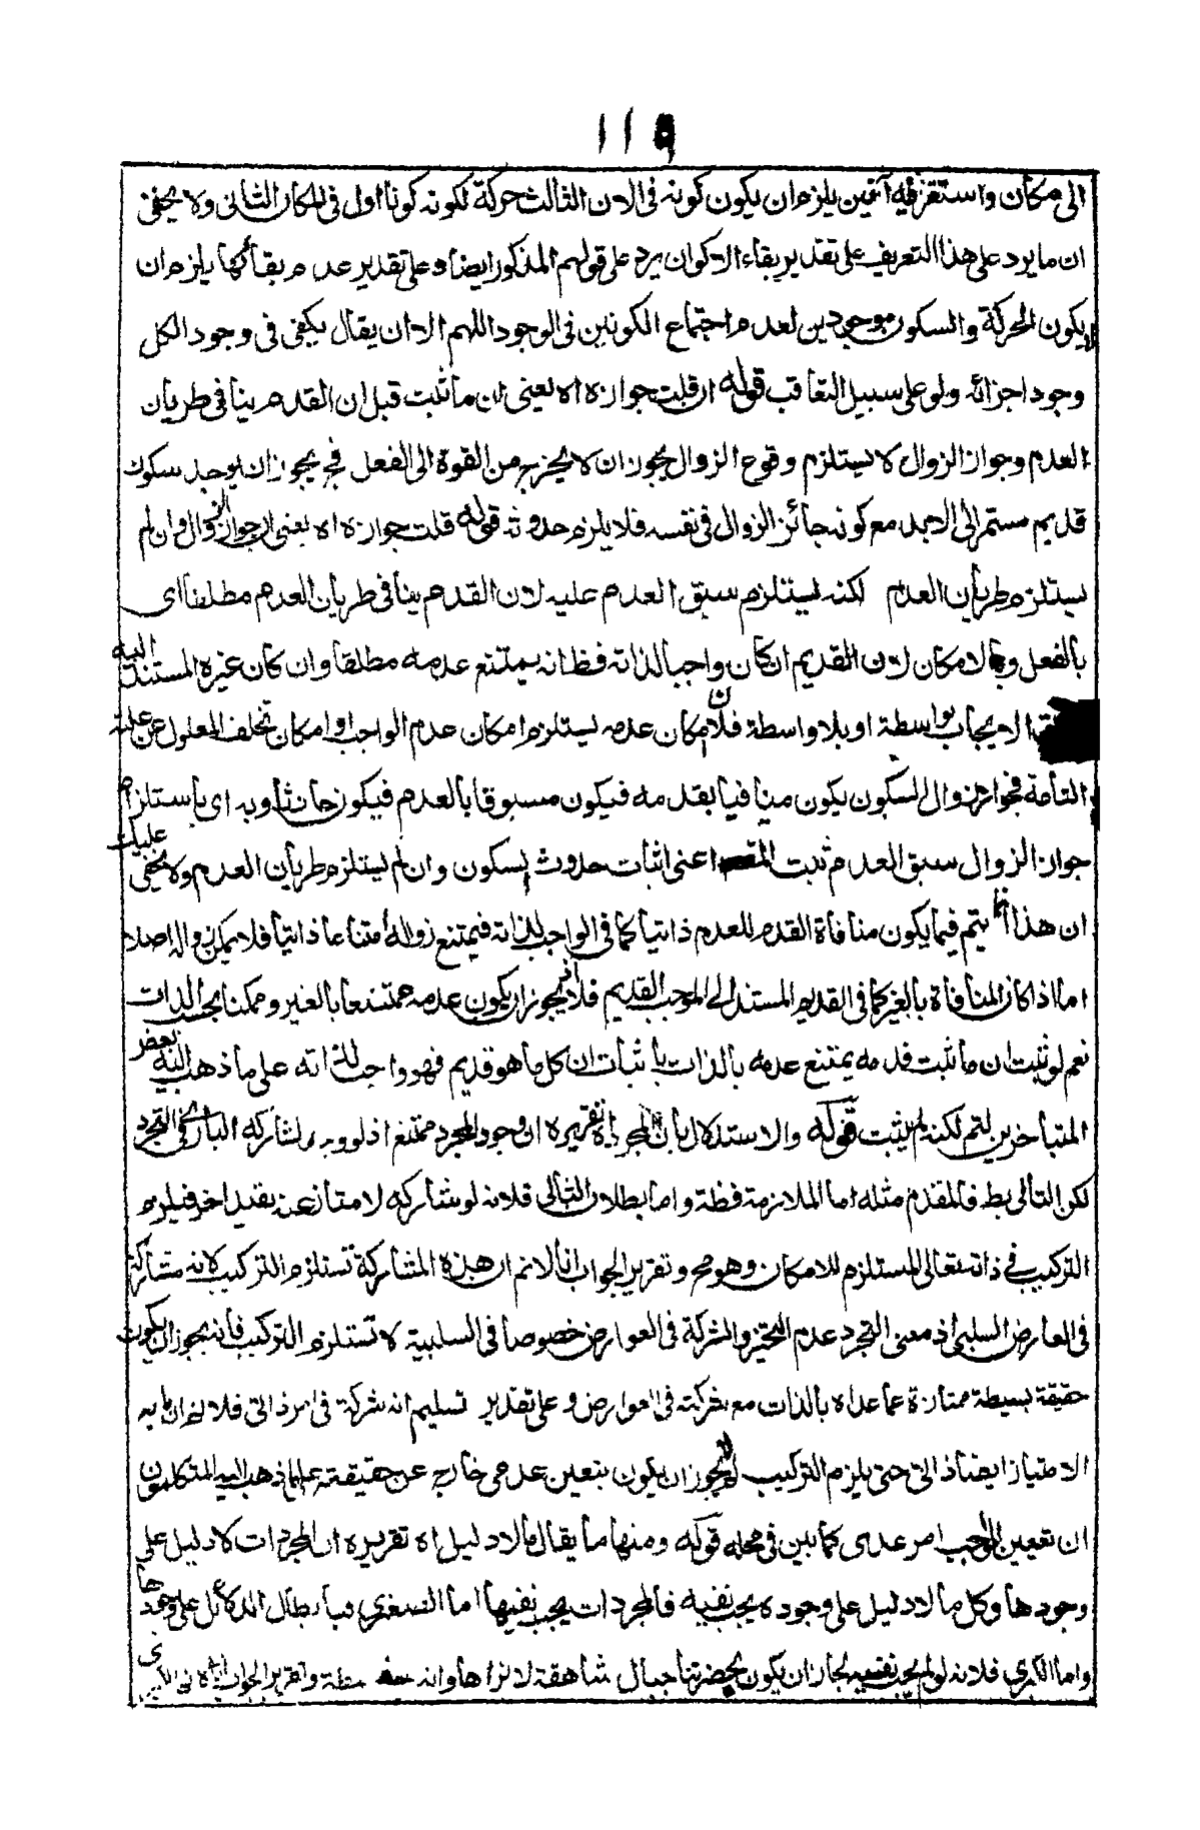 ١١٩
الى مكان واستقر فيه آنين يلزم ان يكون كونه فى الان الثالث حركة لكونه كونا اول فى المكان الثانى ولا يخفى
ان ما يرد على هذا التعريف على تقدير بقاء الاكوان يرد على قولهم المذكور ايضا وعلى تقدير عدم بقائها يلزم ان
لا يكون الحركة والسكون موجودين لعدم اجتماع الكونين فى الوجود اللهم الا ان يقال يكفى فى وجود الكل
وجود اجزائه ولو على سبيل التعاقب قوله ان قلت جوازه اه يعنى ان ما ثبت قبل ان القدم ينافى طريان
العدم وجواز الزوال لا يستلزم وقوع الزوال يجوز ان لا يخرج من القوة الى الفعل فح يجوز ان يوجد سكون
قديم مستمر الى الابد مع كونه جائز الزوال فى نفسه فلا يلزم حدوثه قوله قلت جوازه اه يعنى ان جواز الزوال وان لم
يستلزم طريان العدم لكنه يستلزم سبق العدم عليه لان القدم ينافى طريان العدم مطلقا اى
بالفعل وبالامكان لان القديم ان كان واجبا لذاته فظ انه يمتنع عدمه مطلقا وان كان غيره المستند اليه
الايجاب بواسطة او بلا واسطة فلان امكان عدمه يستلزم امكان عدم الواجب او امكان تخلف المعلول عن علته
التامة فجواز زوال السكون يكون منافيا بقدمه فيكون مسبوقا بالعدم فيكون حادثا وبه اى باستلزام
جواز الزوال سبق العدم ثبت المقصد اعنى اثبات حدوث السكون وان لم يستلزم طريان العدم ولا يخفى عليك
ان هذا انما يتم فيما يكون منافاة القدم للعدم ذاتيا كما فى الواجب لذاته فيمتنع زواله امتناعا ذاتيا فلا يمكن زواله اصلا
اما اذا كان المنافاة بالغير كما فى القديم المستند الى الموجب القديم فلا لانه يجوز ان يكون عدمه ممتنعا بالغير وممكنا بحسب الذات
نعم لو ثبت ان ما ثبت قدمه يمتنع عدمه بالذات باثبات ان كل ما هو قديم فهو واجب لذاته على ما ذهب اليه بعض
المتأخرين لتم لكنه لم يثبت قوله والاستدلال بان المجرد اه تقريره ان وجود المجرد ممتنع اذ لو وجد لشاركه البارى فى التجرد
لكن التالى بط فالمقدم مثله اما الملازمة فظة واما بطلان التالى فلانه لو شاركه لامتاز عنه بقيد اخر فيلزم
التركيب فى ذاته تعالى المستلزم للامكان وهو مح وتقرير الجواب انا لانم ان هذه المشاركة تستلزم التركيب لانه مشاركة
فى العارض السلبى اذ معنى التجرد عدم التحيز والشركة فى العوارض خصوصا فى السلبية لا تستلزم التركيب فانه يجوز ان يكون
حقيقة بسيطة ممتازة عما عداه بالذات مع شركته فى العوارض وعلى تقدير تسليم انه شركة فى امر ذاتى فلا نم ان ما به
الامتياز ايضا ذاتى حتى يلزم التركيب لم لا يجوز ان يكون بتعين عدمى خارج عن حقيقته على ما ذهب اليه المتكلمون
ان تعين الواجب امر عدمى كما بين فى محله قوله ومنها ما يقال ما لا دليل اه تقريره ان المجردات لا دليل على
وجودها وكل ما لا دليل على وجوده يجب نفيه فالمجردات يجب نفيها اما الصغرى فبابطال الدلائل على وجودها
واما الكبرى فلانه لو لم يجب نفيه لجاز ان يكون بحضرتنا جبال شاهقة لا نراها وانه سفسطة وتقرير الجواب